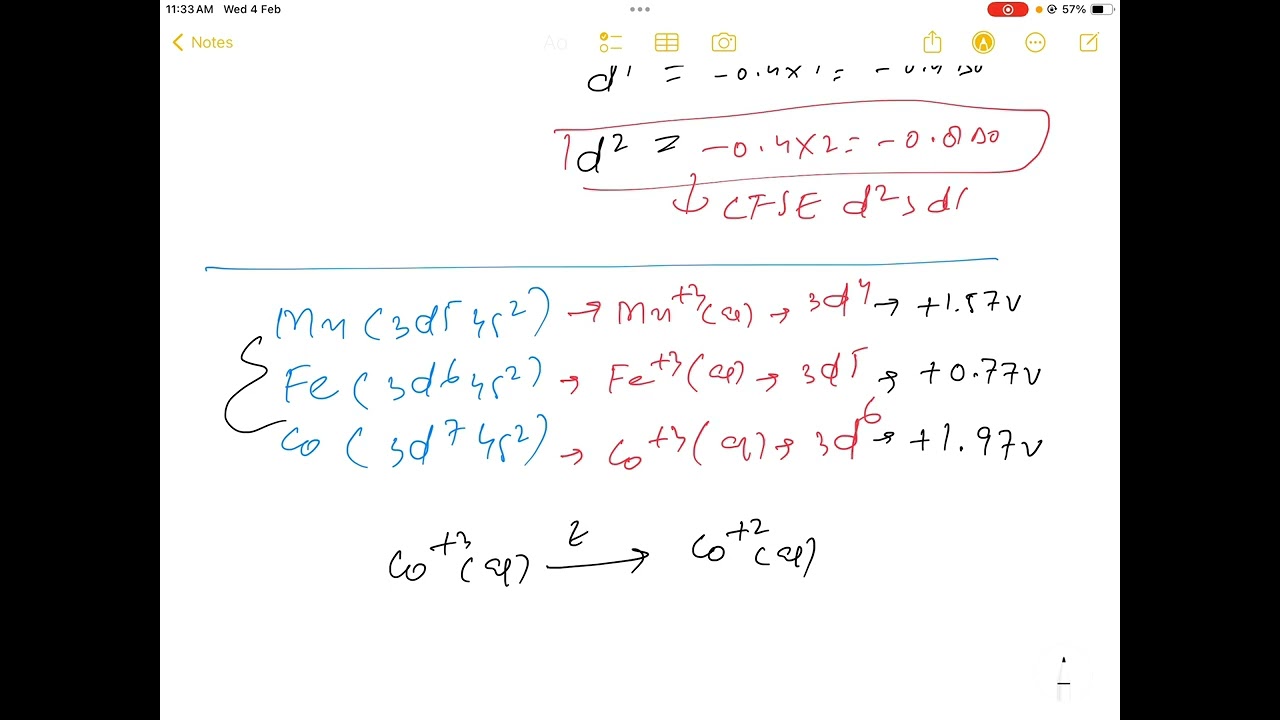 11:33 AM Wed 4 Feb
57%
Notes
Aa
d¹ = -0.4×1 = -0.4Δo
d² = -0.4×2 = -0.8Δo
CFSE d²sdr
Mn (3d⁵ 4s²) → Mn⁺³(aq) → 3d⁴ → +1.57V
Fe (3d⁶ 4s²) → Fe⁺³(aq) → 3d⁵ → +0.77V
Co (3d⁷ 4s²) → Co⁺³(aq) → 3d⁶ → +1.97V
Co⁺³(aq) → Co⁺²(aq)